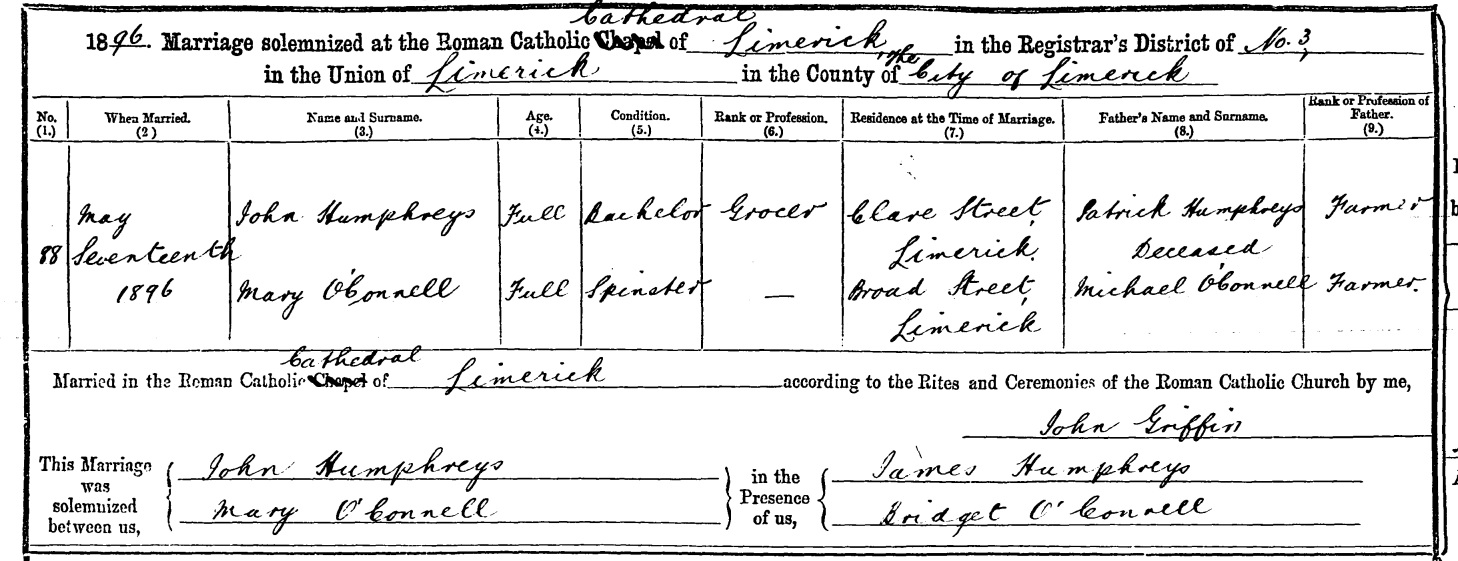 Cathedral
1896. Marriage solemnized at the Roman Catholic Chapel of Limerick, in the Registrar's District of No. 3,
in the Union of Limerick in the County of the City of Limerick
No. (1.) When Married. (2) Name and Surname. (3.) Age. (4.) Condition. (5.) Rank or Profession. (6.) Residence at the Time of Marriage. (7.) Father's Name and Surname. (8.) Rank or Profession of Father. (9.)
May John Humphreys Full Bachelor Grocer Clare Street, Patrick Humphreys Farmer
88 Seventeenth Limerick. Deceased
1896 Mary O'Connell Full Spinster — Broad Street, Michael O'Connell Farmer.
Limerick
Cathedral
Married in the Roman Catholic Chapel of Limerick according to the Rites and Ceremonies of the Roman Catholic Church by me,
John Griffin
This Marriage was solemnized between us, John Humphreys in the Presence of us, James Humphreys
Mary O'Connell Bridget O'Connell